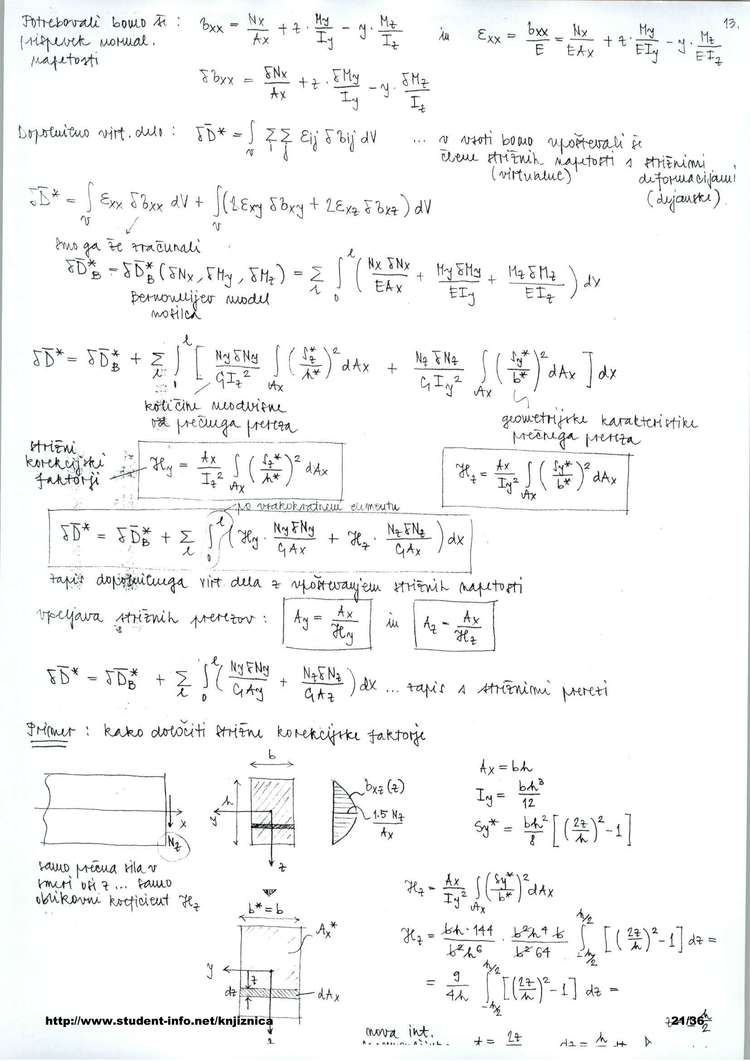 13.
Potrebovali bomo še : σxx = Nx/Ax + z · My/Iy − y · Mz/Iz in εxx = σxx/E = Nx/EAx + z · My/EIy − y · Mz/EIz
prispevek normal.
napetosti
δσxx = δNx/Ax + z · δMy/Iy − y · δMz/Iz
Dopolnilno virt. delo : δD̄* = ∫v Σi Σj εij δσij dV ... v vsoti bomo upoštevali še
člene strižnih napetosti s strižnimi
(virtualne) deformacijami
(dejanske)
δD̄* = ∫v εxx δσxx dV + ∫v (2εxy δσxy + 2εxz δσxz) dV
smo ga že zračunali
δD̄*B = δD̄*B (δNx, δMy, δMz) = Σl ∫0l ( Nx δNx/EAx + My δMy/EIy + Mz δMz/EIz ) dx
Bernoullijev model
nosilca
δD̄* = δD̄*B + Σl ∫0l [ Ny δNy/GIz² ∫Ax (Sz*/h*)² dAx + Nz δNz/GIy² ∫Ax (Sy*/b*)² dAx ] dx
količine neodvisne
od prečnega prereza
geometrijske karakteristike
prečnega prereza
strižni
korekcijski
faktorji
ℋy = Ax/Iz² ∫Ax (Sz*/h*)² dAx
ℋz = Ax/Iy² ∫Ax (Sy*/b*)² dAx
po vsakokratnem elementu
δD̄* = δD̄*B + Σl ∫0l (ℋy · Ny δNy/GAx + ℋz · Nz δNz/GAx) dx
zapis dopolnilnega virt dela z upoštevanjem strižnih napetosti
vpeljava strižnih prerezov : Ay = Ax/ℋy in Az = Ax/ℋz
δD̄* = δD̄B* + Σl ∫0l (Ny δNy/GAy + Nz δNz/GAz) dx ... zapis s strižnimi prerezi
Primer : kako določiti strižne korekcijske faktorje
x
Nz
b
h
y
z
σxz(z)
1.5 Nz/Ax
Ax = bh
Iy = bh³/12
Sy* = bh²/8 [(2z/h)² − 1]
samo prečna sila v
smeri osi z ... samo
oblikovni koeficient ℋz
b* = b
Ax*
y
z
dz
dAx
z
ℋz = Ax/Iy² ∫Ax (Sy*/b*)² dAx
ℋz = bh · 144/b²h⁶ · b²h⁴ b/b² 64 ∫-h/2h/2 [(2z/h)² − 1] dz =
= 9/4h ∫-h/2h/2 [(2z/h)² − 1] dz =
http://www.student-info.net/knjiznica
21/36
nova int.
t = 2z/h